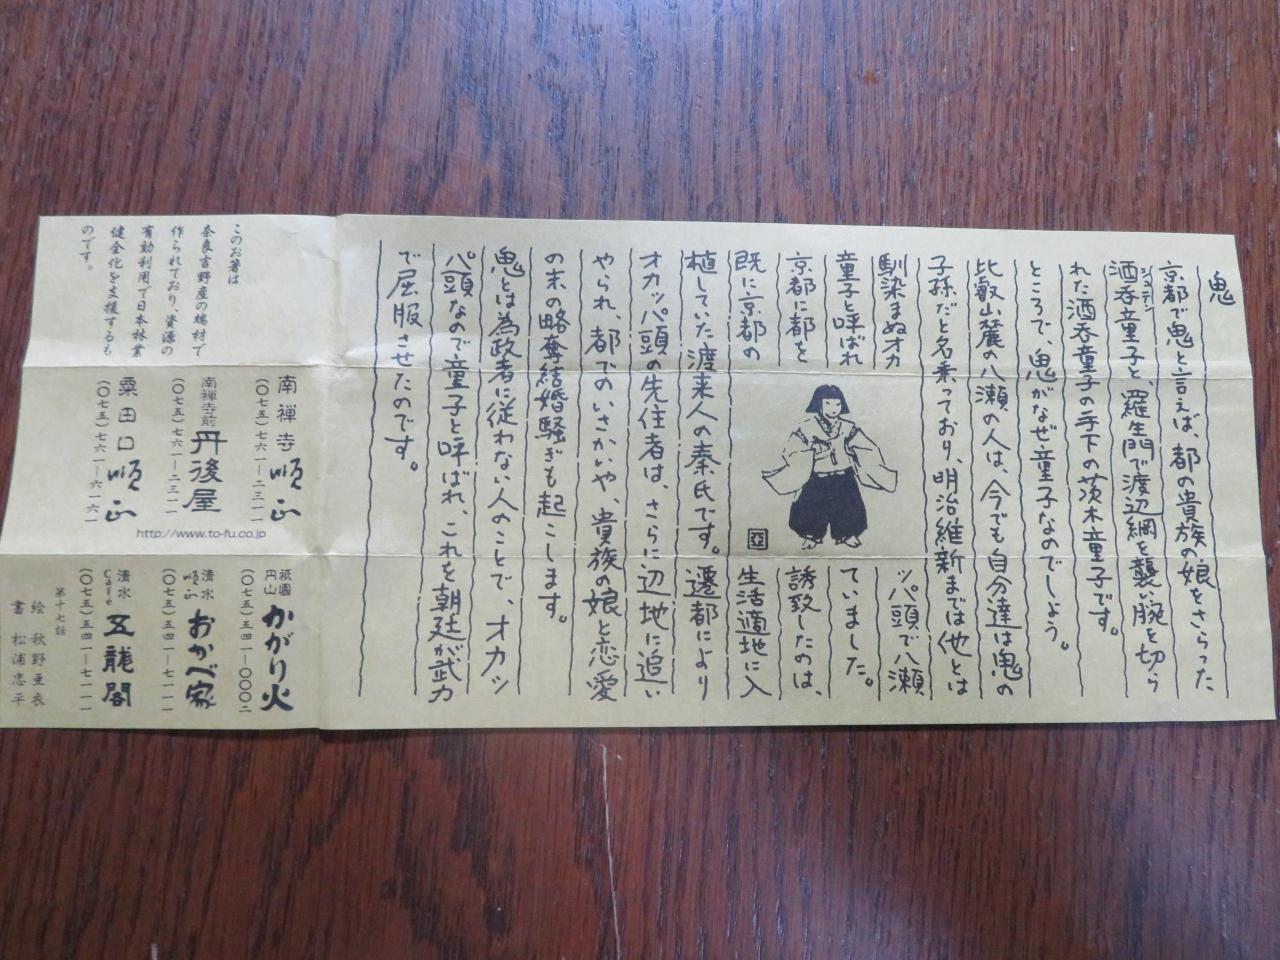 鬼
京都で鬼と言えば、都の貴族の娘をさらった
酒呑童子と、羅生門で渡辺綱を襲い腕を切ら
シュテン
れた酒呑童子の手下の茨木童子です。
ところで、鬼がなぜ童子なのでしょう。
比叡山麓の八瀬の人は、今でも自分達は鬼の
子孫だと名乗っており、明治維新までは他とは
馴染まぬオカッパ頭で八瀬
童子と呼ばれていました。
京都に都を誘致したのは、
既に京都の生活適地に入
植していた渡来人の秦氏です。遷都により
オカッパ頭の先住者は、さらに辺地に追い
やられ、都でのいさかいや、貴族の娘と恋愛
の末の略奪結婚騒ぎも起こします。
鬼とは為政者に従わない人のことで、オカッ
パ頭なので童子と呼ばれ、これを朝廷が武力
で屈服させたのです。
亞
このお箸は
奈良吉野産の端材で
作られており、資源の
有効利用で日本林業
健全化を支援するも
のです。
南禅寺 順正
(〇七五)七六一―二三一一
南禅寺前 丹後屋
(〇七五)七六一―二三一一
粟田口 順正
(〇七五)七六一―六一六一
http://www.to-fu.co.jp
祇園 円山 かがり火
(〇七五)五四一―〇〇〇二
清水 順正 おかべ家
(〇七五)五四一―七一一一
清水 Café 五龍閣
(〇七五)五四一―七一一一
第十七話
絵 秋野亜衣
書 松浦忠平